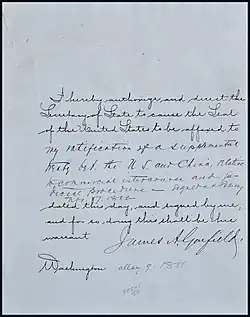 I hereby authorize and direct the
Secretary of State to cause the Seal
of the United States to be affixed to
my ratification of a supplemental
treaty bet. the U S and China, relative
to commercial intercourse and ju-
dicial procedure — signed at Peking
Nov. 17. 1880
dated this day, and signed by me,
and for so doing this shall be his
warrant
James A. Garfield.
Washington May 9. 1881